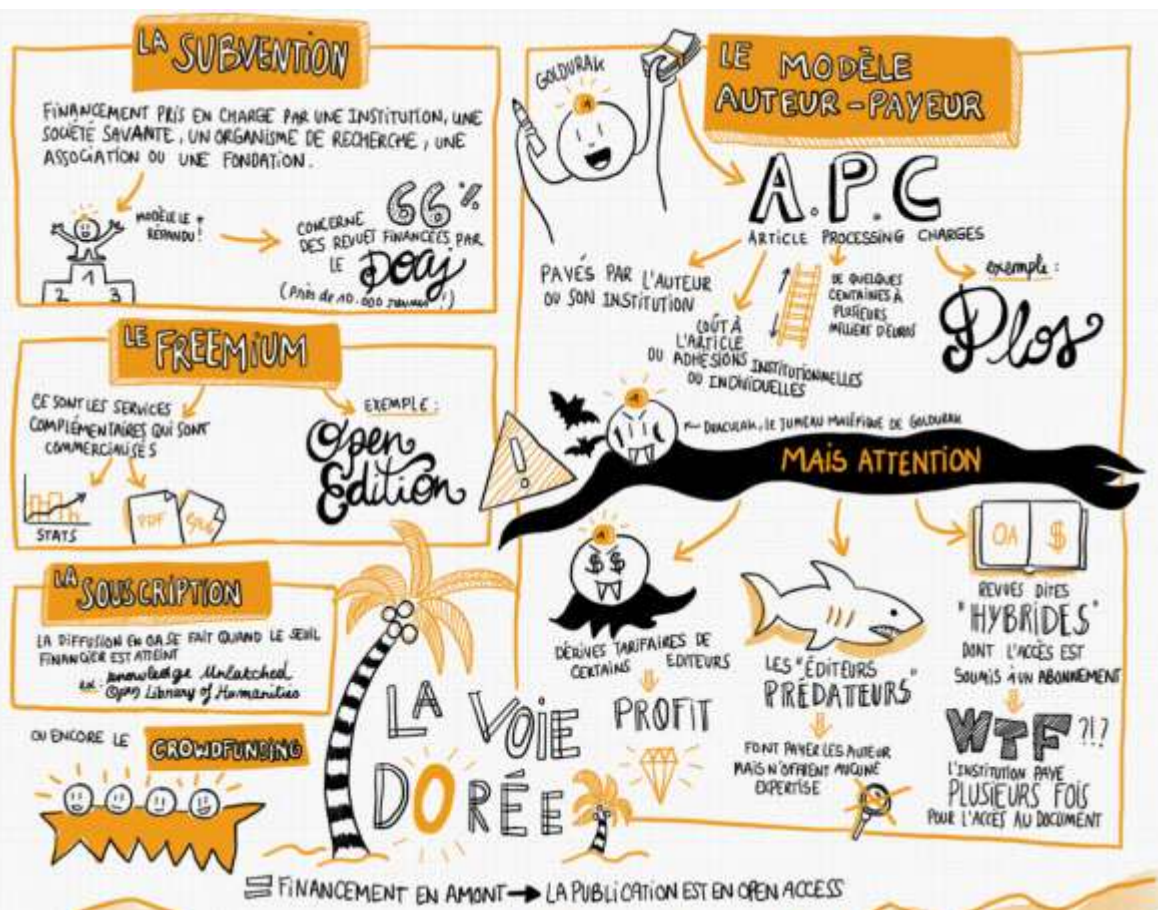 LA SUBVENTION
FINANCEMENT PRIS EN CHARGE PAR UNE INSTITUTION, UNE
SOCIÉTÉ SAVANTE, UN ORGANISME DE RECHERCHE, UNE
ASSOCIATION OU UNE FONDATION.
MODÈLE LE +
RÉPANDU!
1
2 3
CONCERNE 66%
DES REVUES FINANCÉES PAR
LE Doaj
(Près de 10.000 revues!)
LE FREEMIUM
CE SONT LES SERVICES
COMPLÉMENTAIRES QUI SONT
COMMERCIALISÉS
STATS
PDF
epub
EXEMPLE:
Open
Edition
LA SOUSCRIPTION
LA DIFFUSION EN OA SE FAIT QUAND LE SEUIL
FINANCIER EST ATTEINT
ex: Knowledge Unlatched
Open Library of Humanities
OU ENCORE LE CROWDFUNDING
LA VOIE
DORÉE
GOLDURAK
LE MODÈLE
AUTEUR-PAYEUR
A.P.C
ARTICLE PROCESSING CHARGES
PAYÉS PAR L'AUTEUR
OU SON INSTITUTION
COÛT À
L'ARTICLE
OU ADHÉSIONS INSTITUTIONNELLES
OU INDIVIDUELLES
DE QUELQUES
CENTAINES À
PLUSIEURS
MILLIERS D'EUROS
exemple:
Plos
!
DRACULAK, LE JUMEAU MALÉFIQUE DE GOLDURAK
MAIS ATTENTION
$ $
DÉRIVES TARIFAIRES DE
CERTAINS EDITEURS
PROFIT
LES "ÉDITEURS
PRÉDATEURS"
FONT PAYER LES AUTEUR
MAIS N'OFFRENT AUCUNE
EXPERTISE
OA $
REVUES DITES
"HYBRIDES"
DONT L'ACCÈS EST
SOUMIS À UN ABONNEMENT
WTF ?!?
L'INSTITUTION PAYE
PLUSIEURS FOIS
POUR L'ACCÈS AU DOCUMENT
FINANCEMENT EN AMONT → LA PUBLICATION EST EN OPEN ACCESS